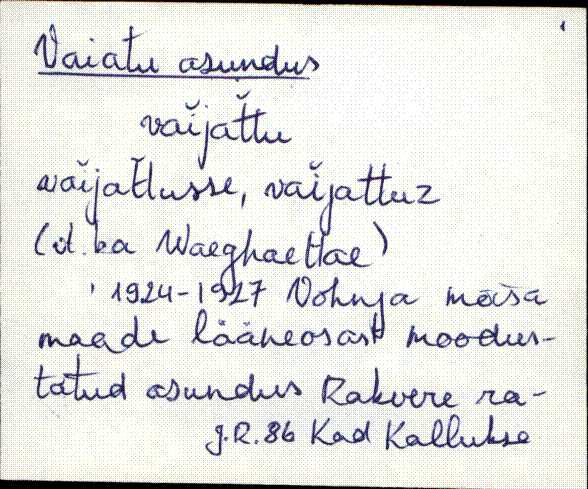 Vaiatu asundus
vaĭjat̆tu
vaĭjat̆tusse, vaĭjattuz
(vt. ka Waeghaettae)
1924-1927 Vohnja mõisa
maade lääneosast moodus-
tatud asundus Rakvere ra-
J.R. 86 Kad Kallukse